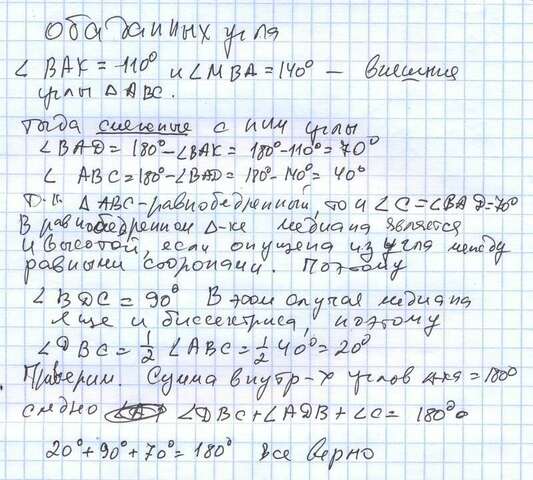 оба данных угла
∠ BAK = 110° и ∠MBA = 140° — внешние
углы △ ABC.
Тогда смежные с ним углы
∠BAD = 180° - ∠BAK = 180° - 110° = 70°
∠ ABC = 180° - ∠BAD = 180° - 140° = 40°
Т.к. △ ABC - равнобедренный, то и ∠C = ∠BAD = 70°
В равнобедренном △-ке медиана является
и высотой, если опущена из угла между
равными сторонами. Поэтому
∠ BDC = 90° В этом случая медиана
еще и биссектриса, поэтому
∠DBC = 1/2 ∠ABC = 1/2 40° = 20°
Проверим. Сумма внутр-х углов △ка = 180°
∠DBC + ∠ADB + ∠C = 180°
20° + 90° + 70° = 180° все верно